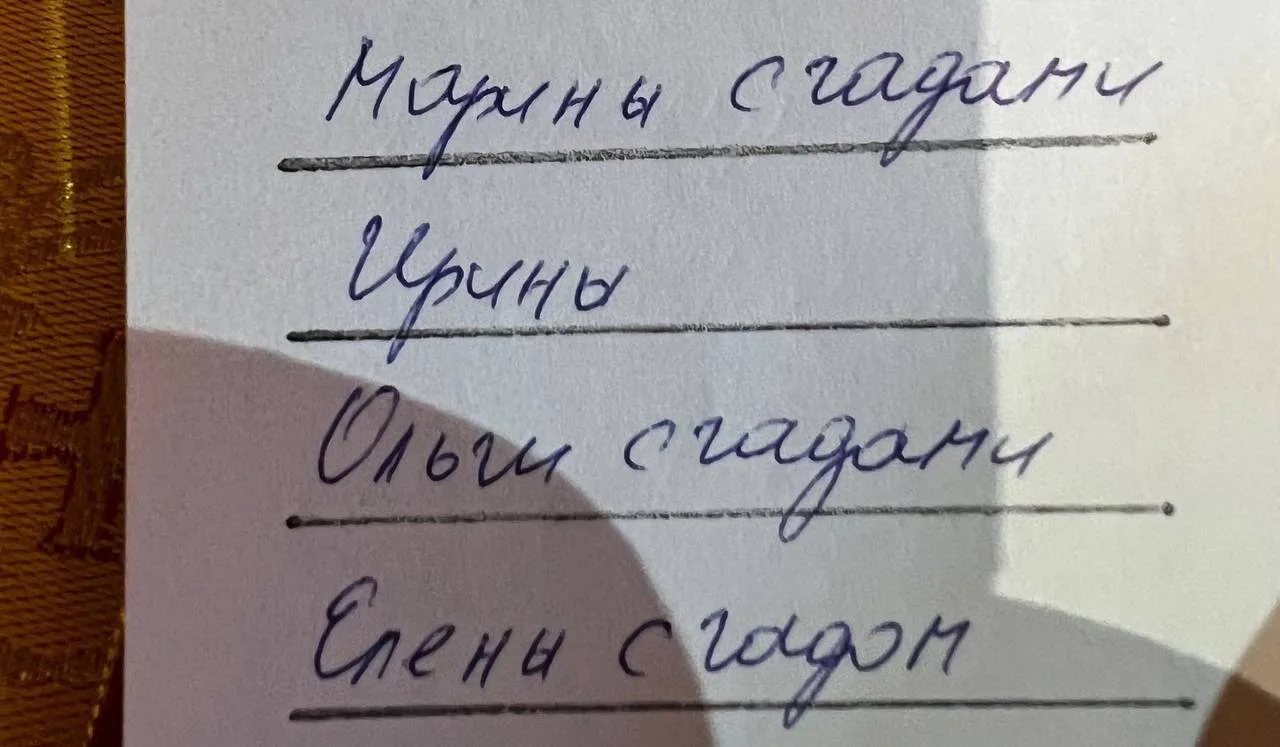 Марины с гадами
Ирины
Ольги с гадами
Елены с гадом